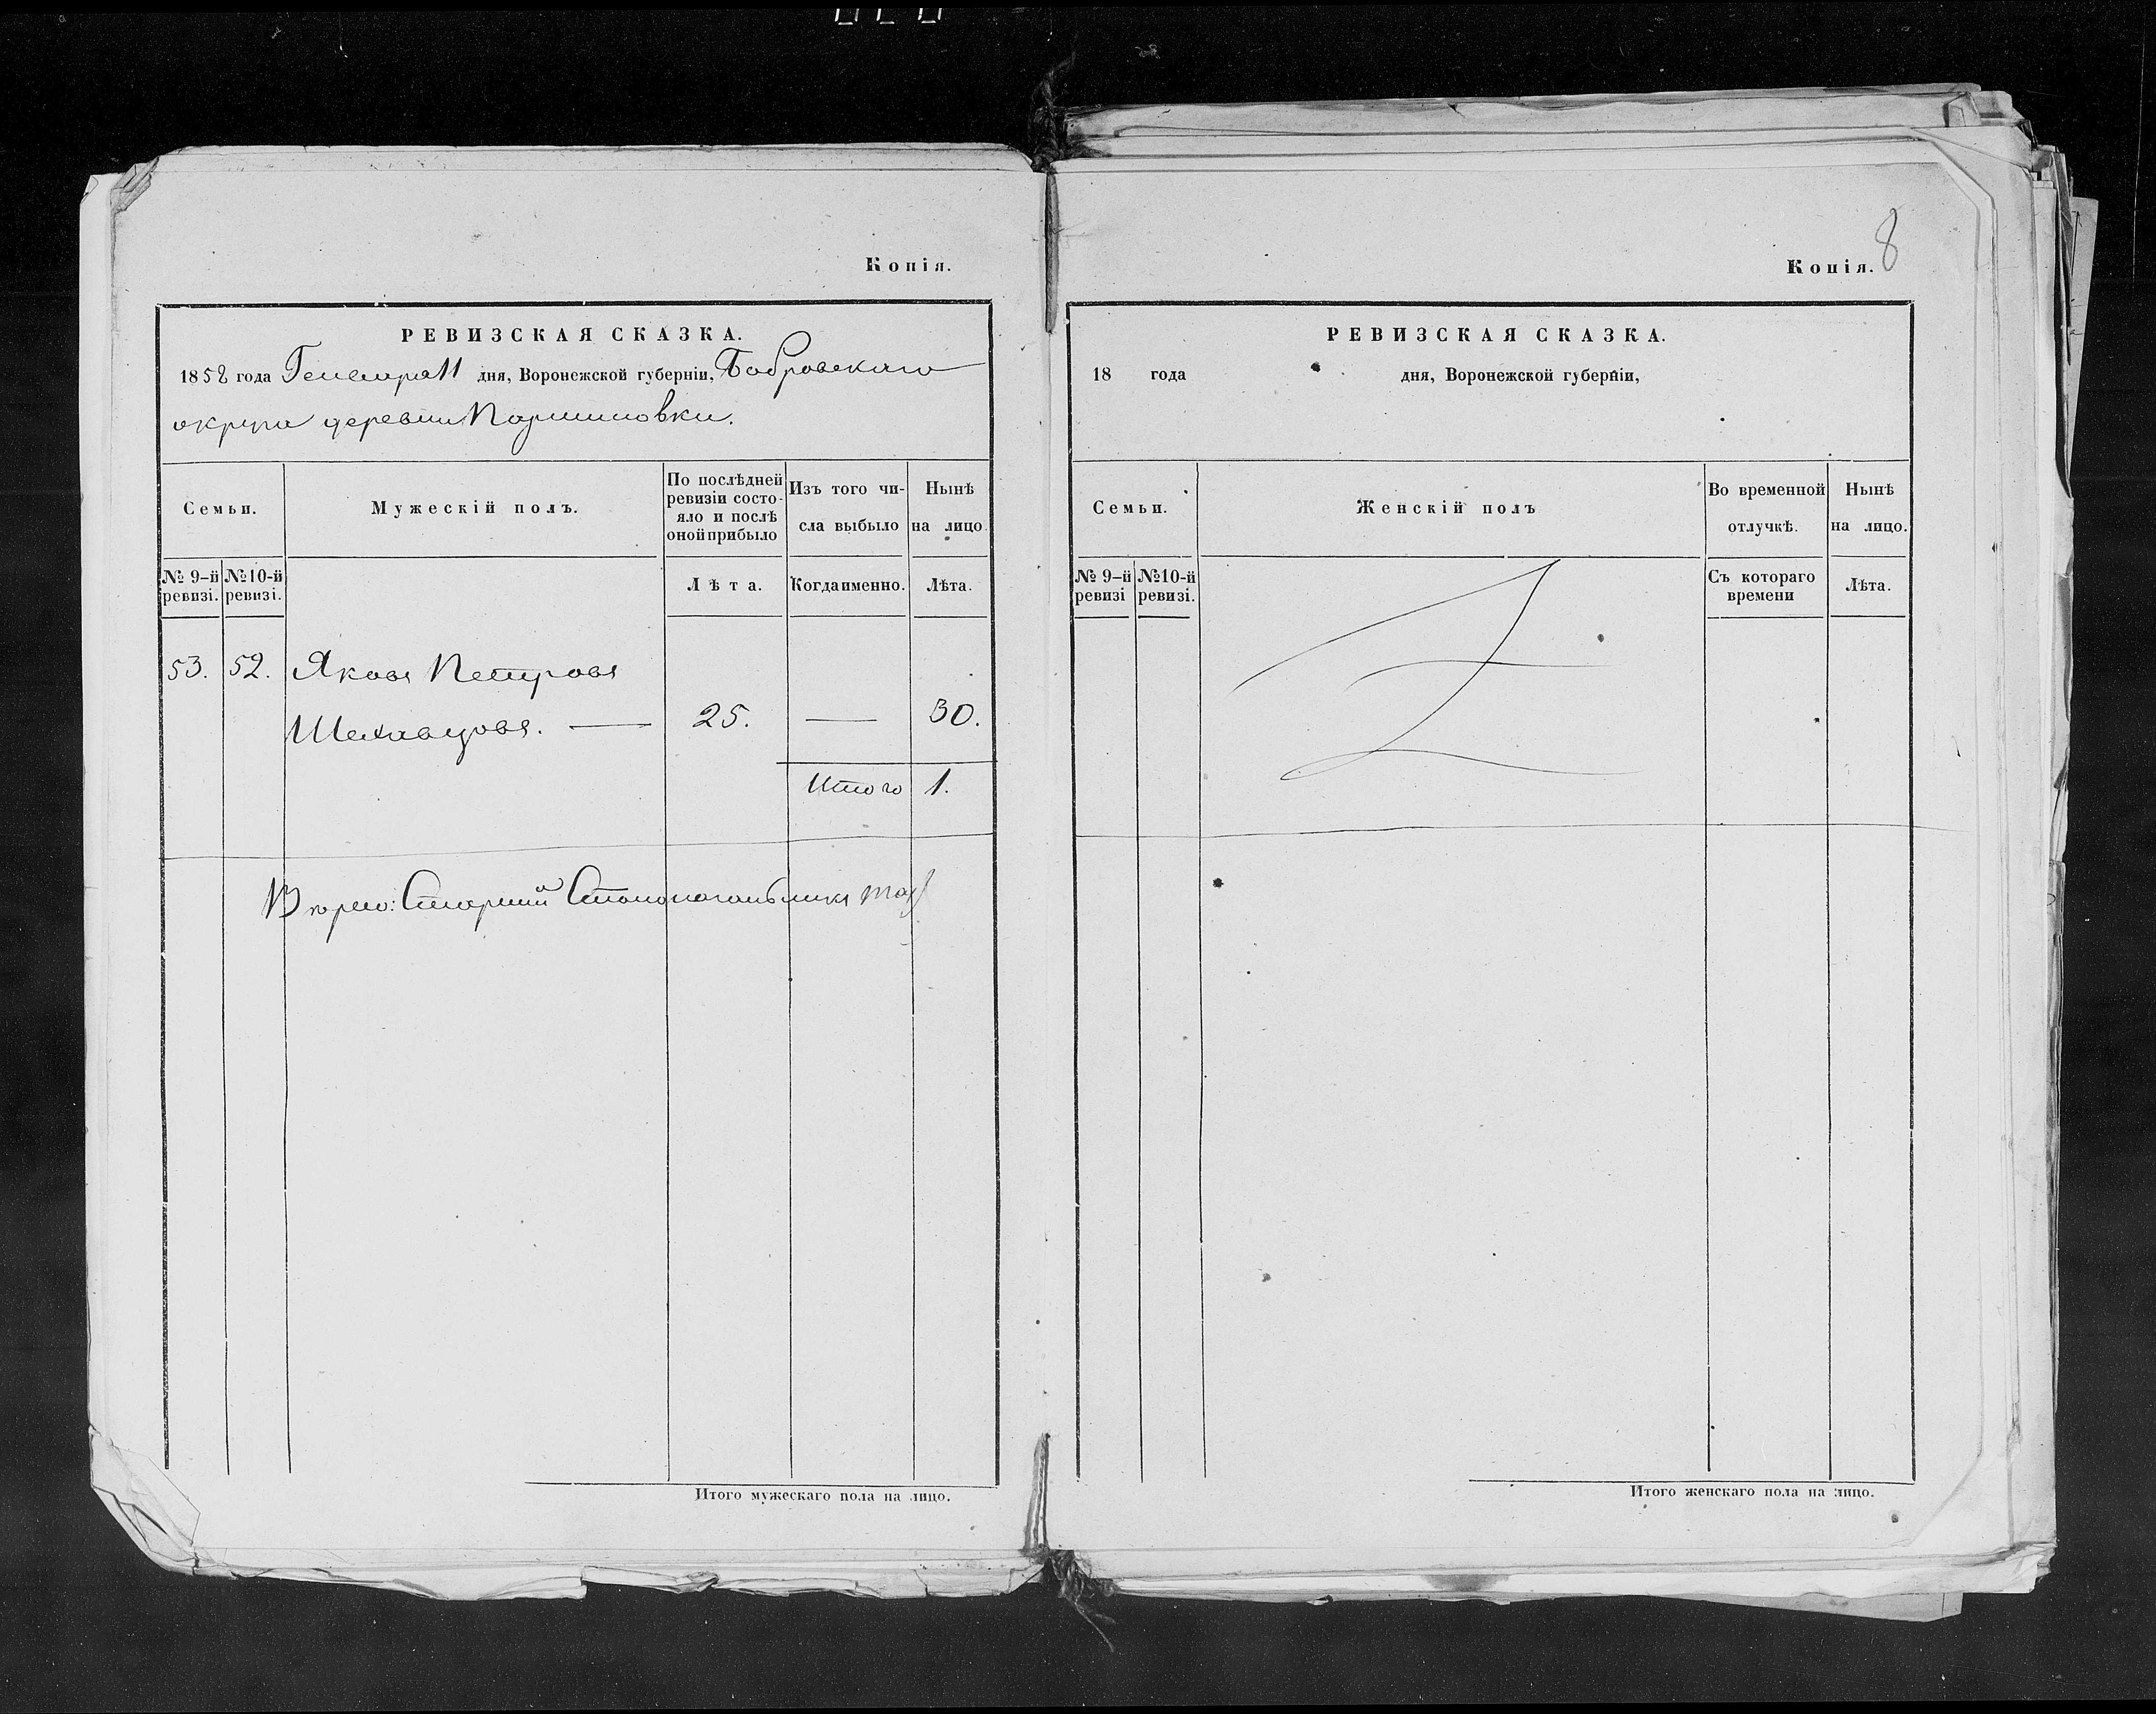 Копія.
РЕВИЗСКАЯ СКАЗКА.
1858 года Генваря 11 дня, Воронежской губерніи, Бобровскаго
округа деревни
Семьи.
Мужескій полъ.
По послѣдней
ревизіи состо-
яло и послѣ
оной прибыло
Изъ того чи-
сла выбыло
Нынѣ
на лицо.
№ 9-й
ревизі.
№10-й
ревизі.
Лѣта.
Когда именно.
Лѣта.
53. 52. Яковъ Петровъ
25. — 30.
Итого 1.
Вѣрно: Старшій Столоначальникъ
Итого мужескаго пола на лицо.
8
Копія.
РЕВИЗСКАЯ СКАЗКА.
18 года дня, Воронежской губерніи,
Семьи.
Женскій полъ
Во временной
отлучкѣ.
Нынѣ
на лицо.
№ 9-й
ревизі
№10-й
ревизі.
Съ котораго
времени
Лѣта.
Итого женскаго пола на лицо.